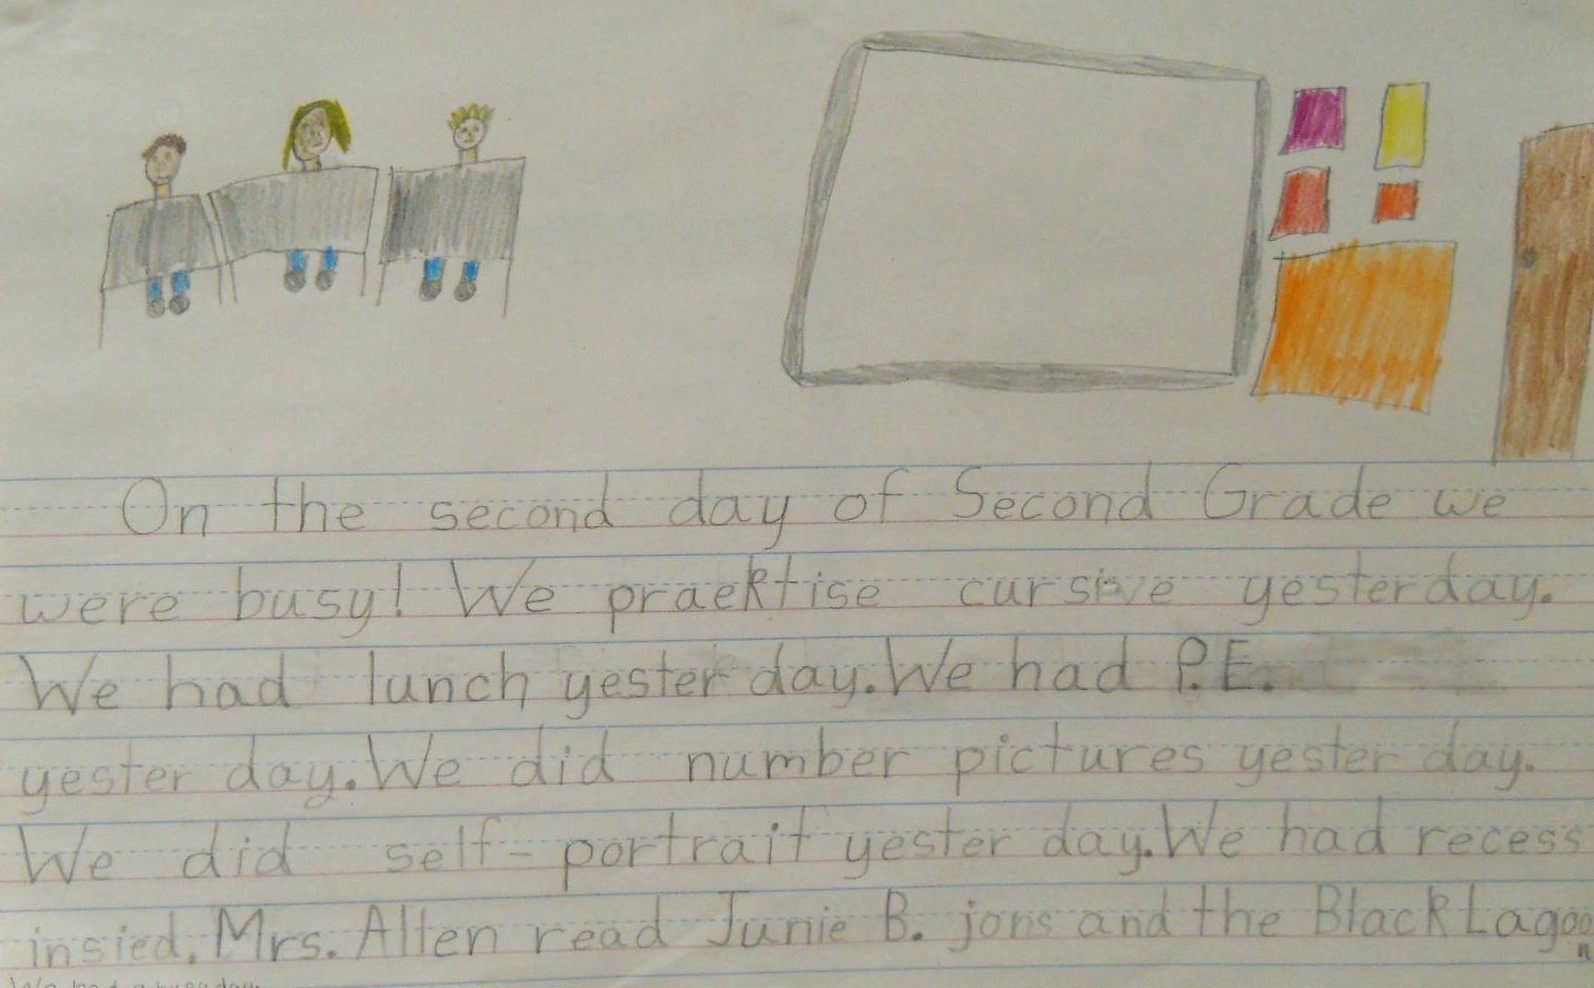 On the second day of Second Grade we
were busy! We praektise cursive yesterday.
We had lunch yester day. We had P.E.
yester day. We did number pictures yester day.
We did self-portrait yester day. We had recess
insied. Mrs. Allen read Junie B. jons and the Black Lagoon
We had a busy day